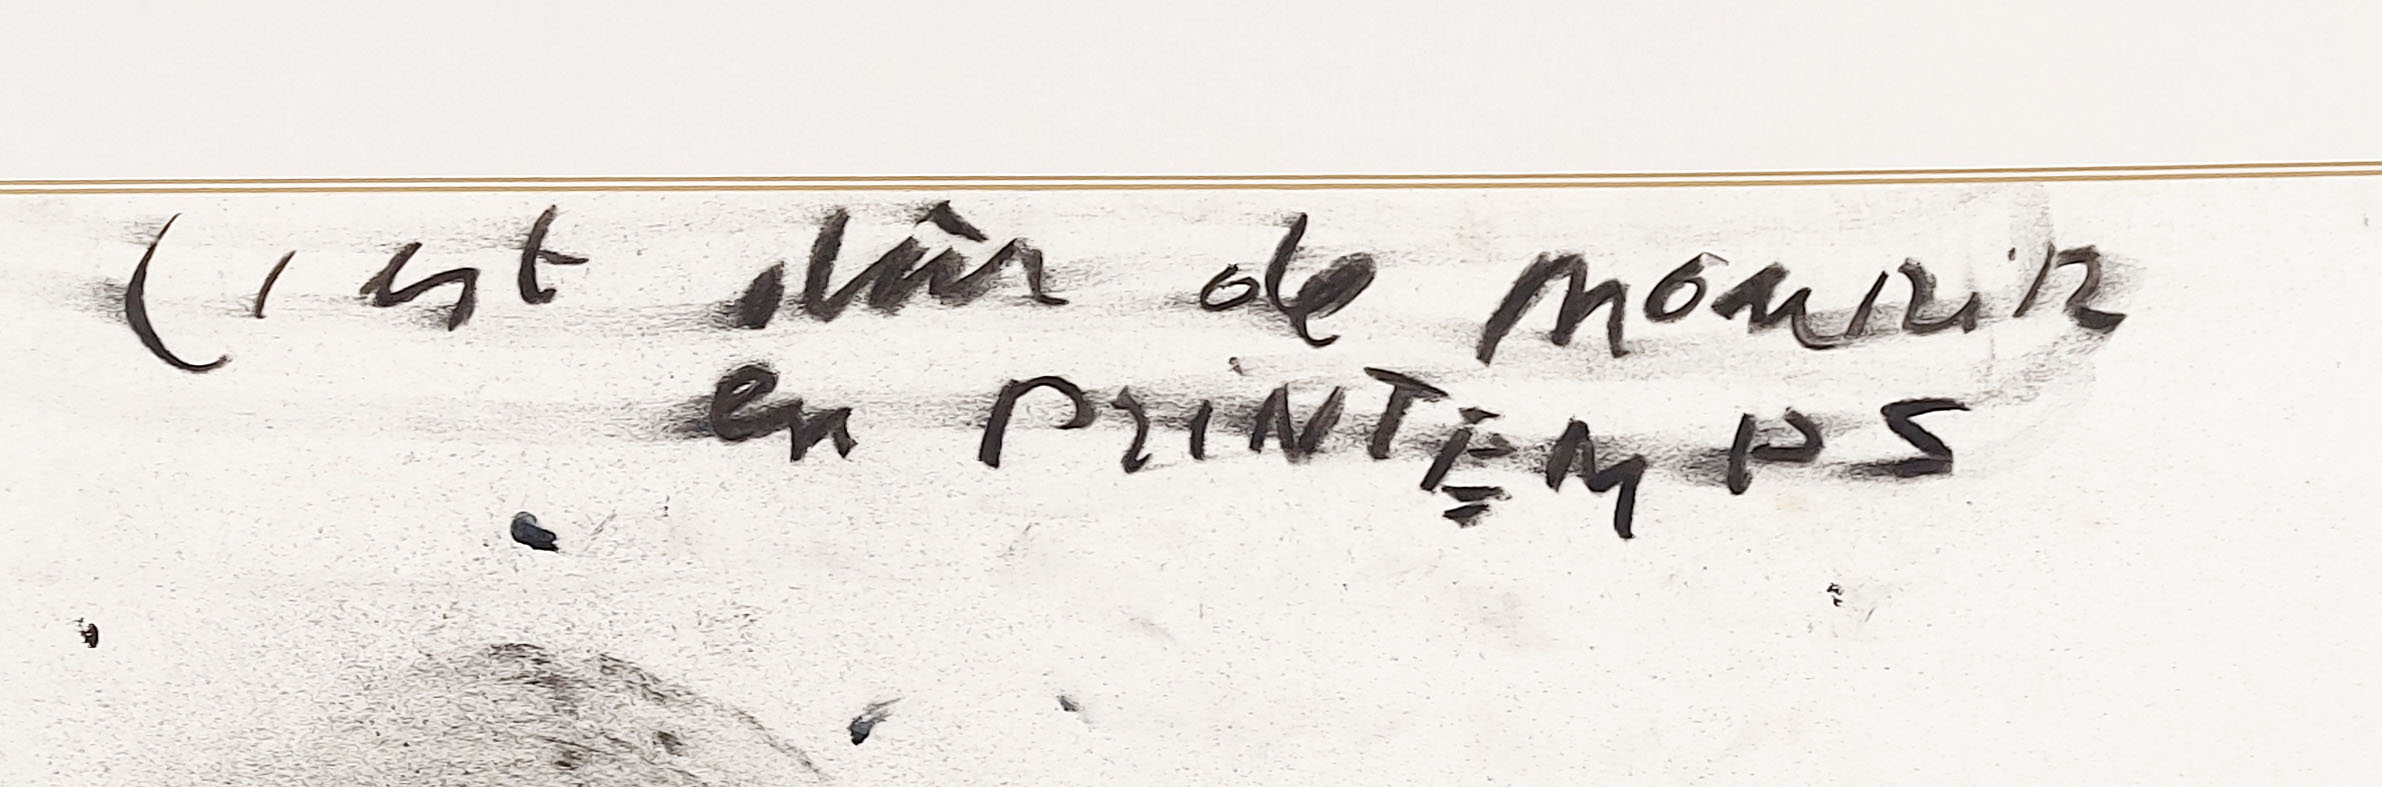 C'est dûr de mourir
en PRINTEMPS